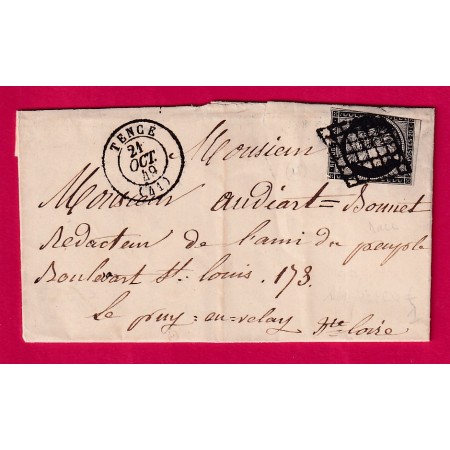 TENCE
21
OCT.
49
(41)
Monsieur
Monsieur audiart=Bonnet
Rédacteur de l'ami du peuple
Boulevart St. Louis. 173.
Le puy=en=velay hte=loire